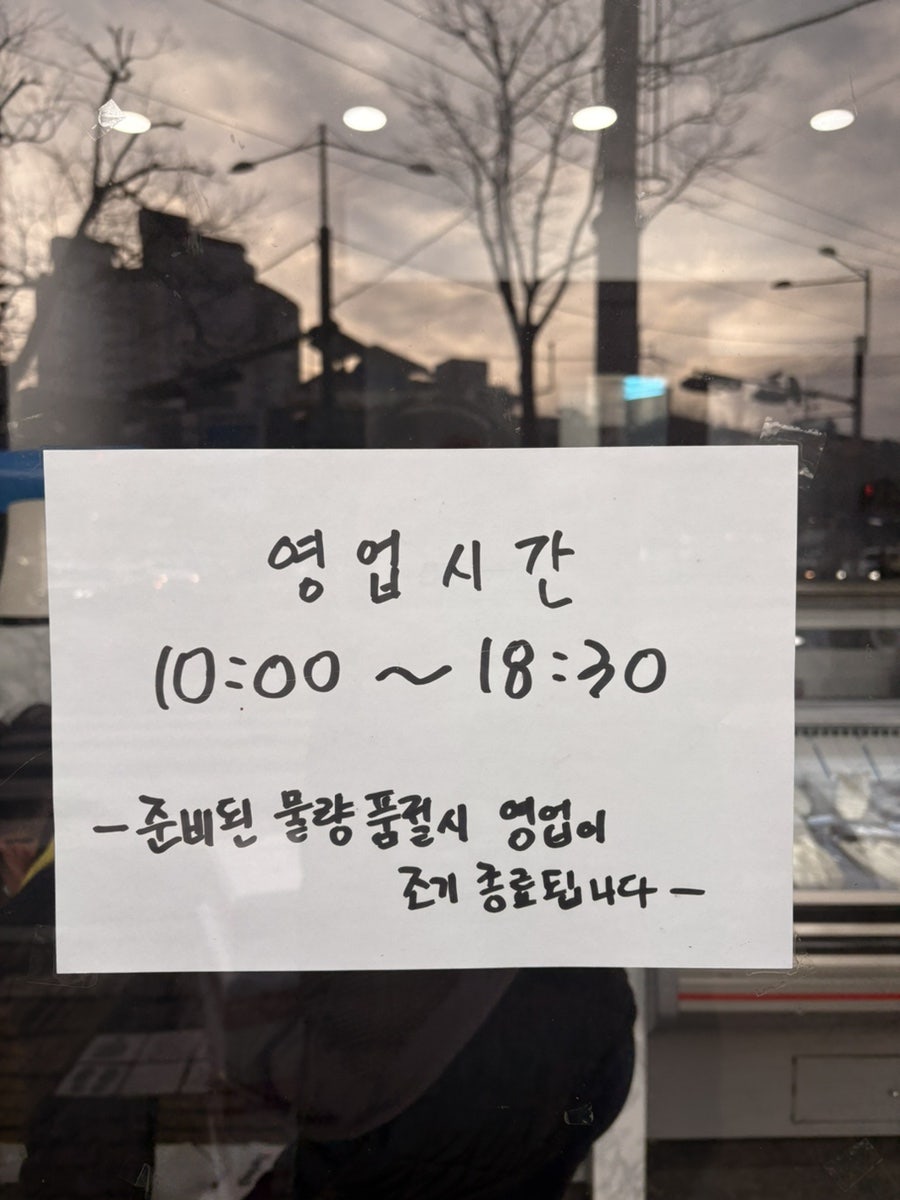 영업시간
10:00 ~ 18:30
- 준비된 물량 품절시 영업이
조기 종료됩니다 -